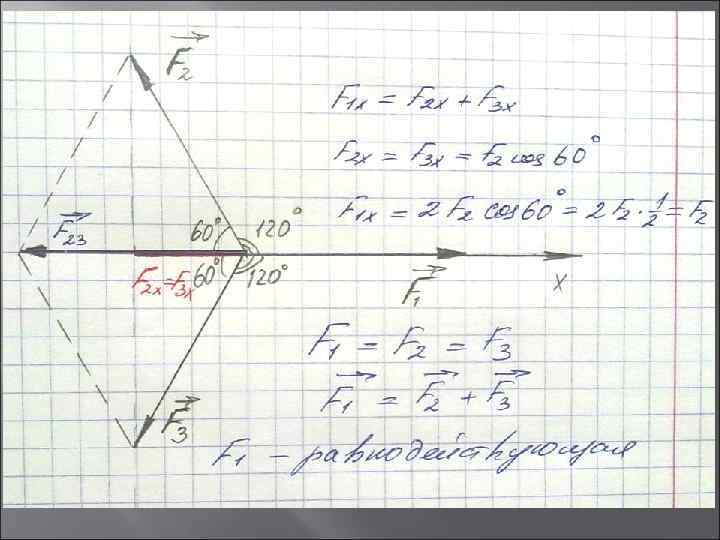 F⃗₂
F₁ₓ = F₂ₓ + F₃ₓ
F₂ₓ = F₃ₓ = F₂ cos 60°
F₁ₓ = 2 F₂ cos 60° = 2 F₂ · 1/2 = F₂
F⃗₂₃
60° 120°
F₂ₓ = F₃ₓ 60° 120°
F⃗₁
x
F₁ = F₂ = F₃
F⃗₁ = F⃗₂ + F⃗₃
F⃗₃
F₁ – равнодействующая